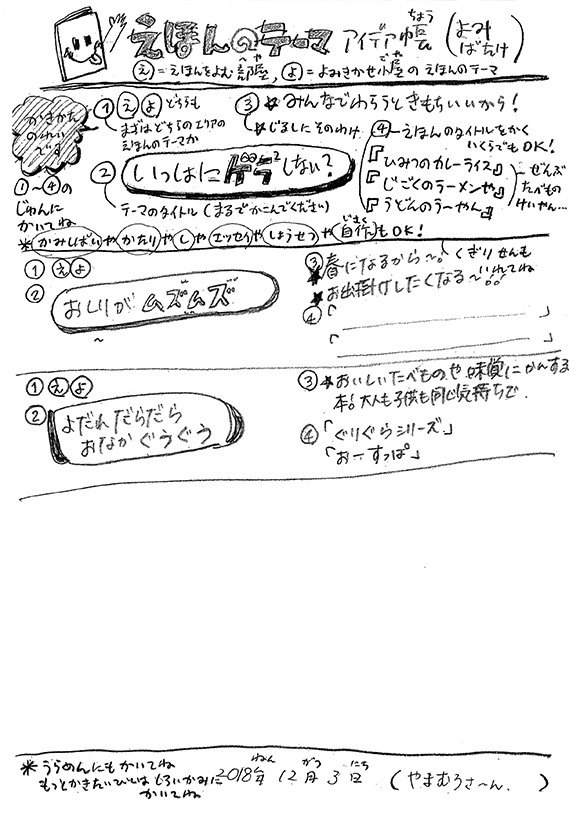 えほんのテーマ アイデア帳(ちょう) (よみばたけ)
え=えほんをよむ部屋(へや), よ=よみきかせ小屋(ごや)のえほんのテーマ
かきかたのれいです
①〜④のじゅんにかいてね
① え よ どちらも
まずはどちらのエリアの
えほんのテーマか
② いっしょに ゲラゲラ しない?
テーマのタイトル(まるでかこんでください)
③ ★みんなでわらうときもちいいから!
★じるしにそのわけ
④ えほんのタイトルをかく
いくらでもOK!
『ひみつのカレーライス』
『じごくのラーメンや』
『うどんのうーやん』
ぜんぶ
たべもの
けいやん…
※かみしばいやかたりやしやエッセイやしょうせつや自作(じさく)もOK!
① え よ
② おしりが ムズムズ
〜
③ ★春になるから〜。
★お出掛けしたくなる〜!!
くぎりせんも
いれてね
④「 」
「 」
① え よ
② よだれ だらだら
おなか ぐうぐう
③ ★おいしいたべものや味覚にかんする
本!大人も子供も同じ気持ちで.
④「ぐりぐらシリーズ」
「おーすっぱ」
※うらめんにもかいてね
もっとかきたいひとはしろいかみに
かいてね
2018年(ねん) 12月(がつ) 3日(にち) (やまむろさ〜ん. )